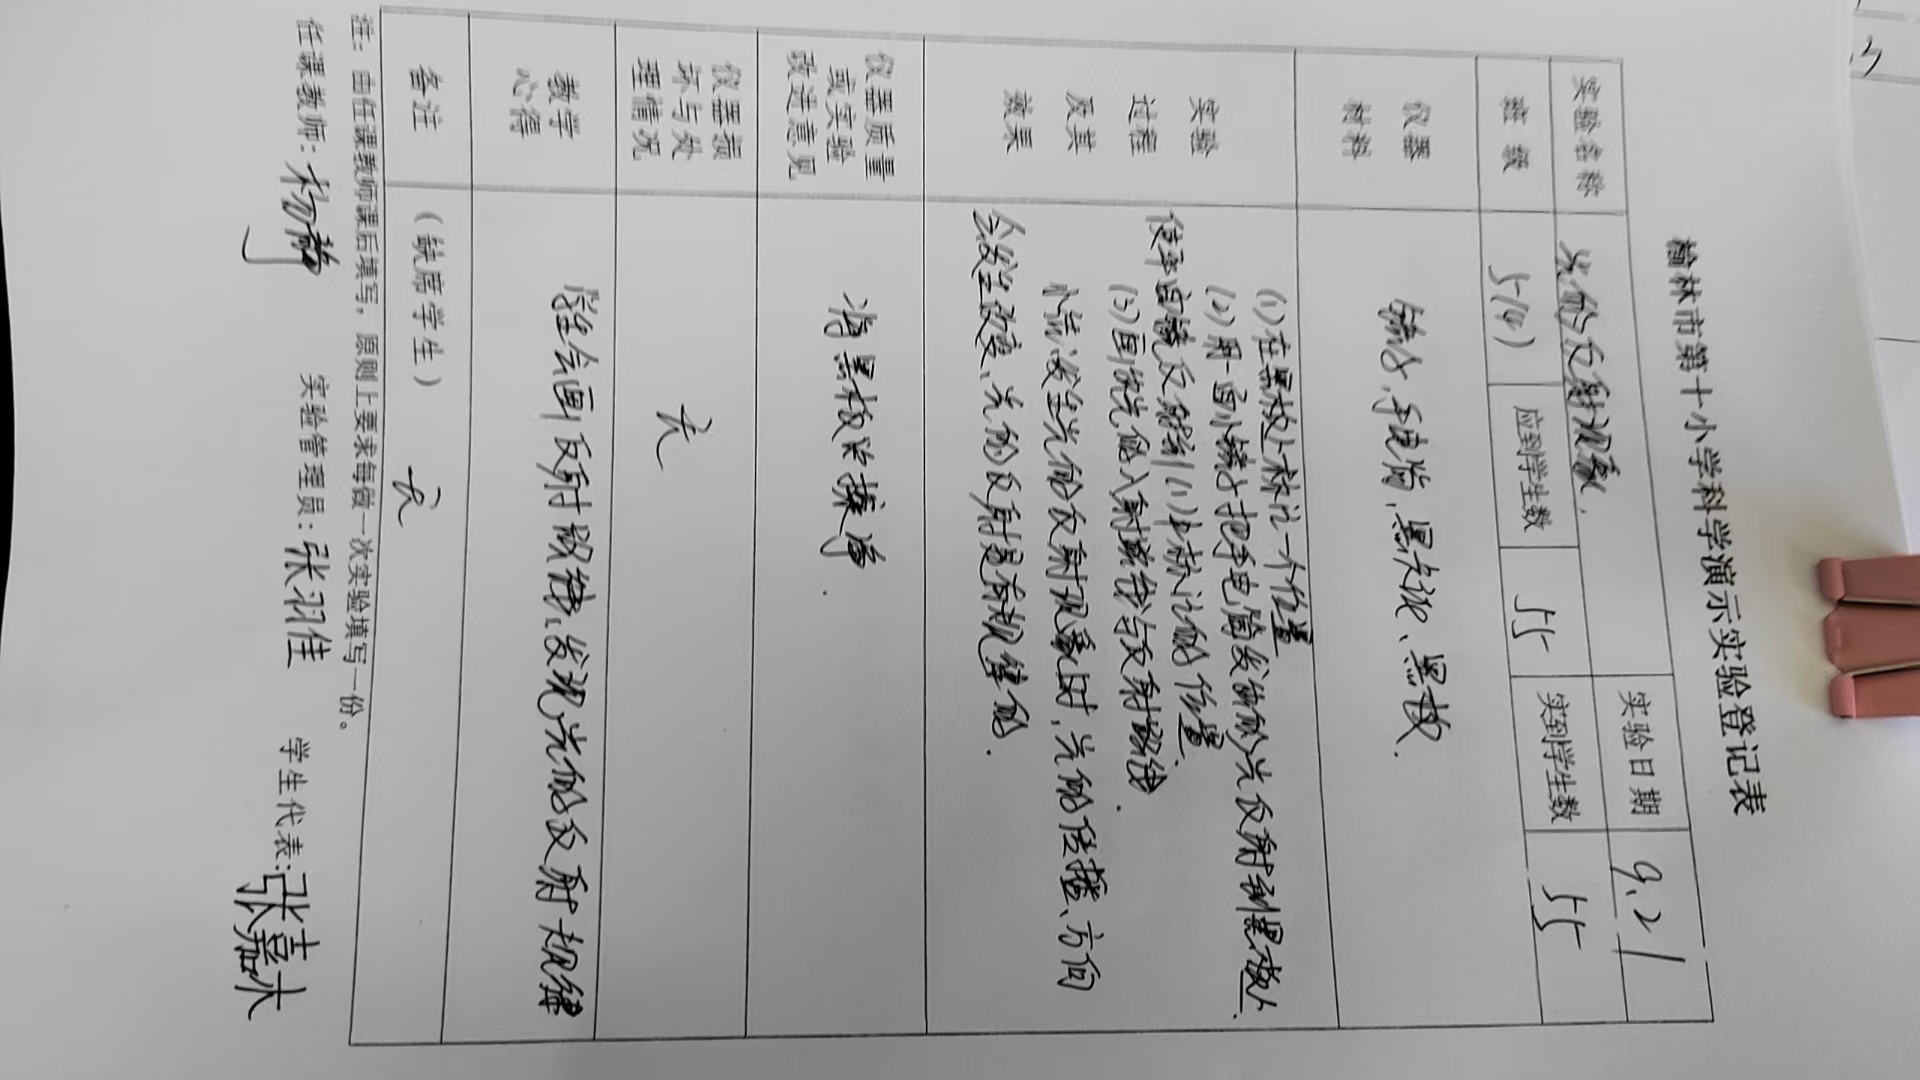 榆林市第十小学科学演示实验登记表
实验名称 光的反射现象. 实验日期 9.21
班级 5(4) 应到学生数 55 实到学生数 55
仪器材料 镜子,手电筒,黑卡纸、黑板.
实验过程及其效果 (1)在黑板上标记一个位置
(2)用一面小镜子把手电筒发出的光反射到黑板上.
使平面镜反射到(1)中标记的位置.
(3)画出光的入射路线与反射路线.
小结:发生光的反射现象时,光的传播、方向
会发生改变、光的反射是有规律的.
仪器质量或实验改进意见 将黑板来擦净.
仪器损坏与处理情况 无
教学心得 学生会画反射路线、发现光的反射规律
备注 (缺席学生) 无
注:由任课教师课后填写,原则上要求每做一次实验填写一份。
任课教师:杨静 实验管理员:张羽佳 学生代表:张嘉木